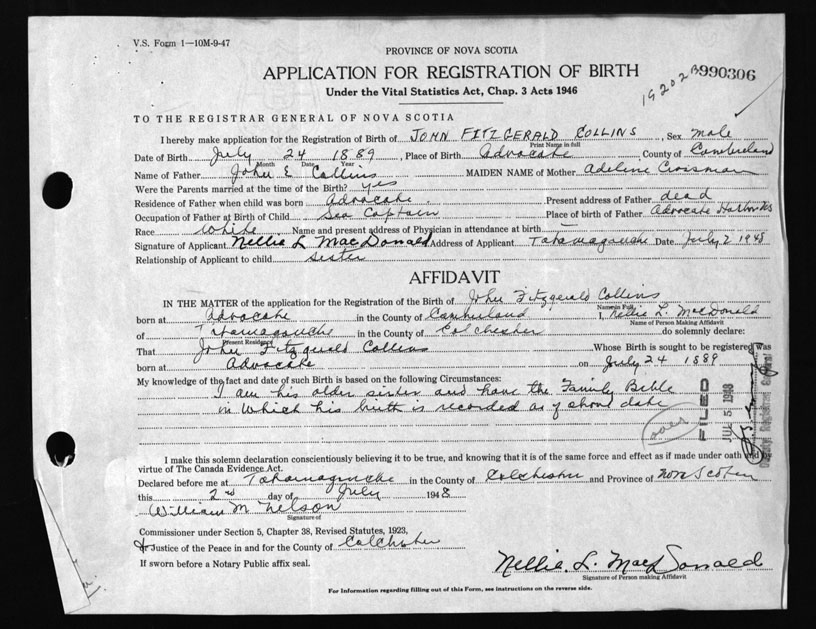 V.S. Form 1—10M-9-47
PROVINCE OF NOVA SCOTIA
APPLICATION FOR REGISTRATION OF BIRTH
Under the Vital Statistics Act, Chap. 3 Acts 1946
19202 B990306
TO THE REGISTRAR GENERAL OF NOVA SCOTIA
I hereby make application for the Registration of Birth of JOHN FITZGERALD COLLINS, Sex male
Print Name in full
Date of Birth July 24 1889, Place of Birth Advocate, County of Cumberland
Month Date Year
Name of Father John E Collins MAIDEN NAME of Mother Adeline Crossman
Were the Parents married at the time of the Birth? yes
Residence of Father when child was born Advocate. Present address of Father dead
Occupation of Father at Birth of Child Sea Captain Place of birth of Father Advocate Harbor NS
Race White Name and present address of Physician in attendance at birth —
Signature of Applicant Nellie L MacDonald Address of Applicant Tatamagouche Date July 2 1948
Relationship of Applicant to child sister
AFFIDAVIT
IN THE MATTER of the application for the Registration of the Birth of John Fitzgerald Collins
born at Advocate in the County of Cumberland I, Nellie L. MacDonald
Name in Full
Name of Person Making Affidavit
of Tatamagouche in the County of Colchester do solemnly declare:
Present Residence
That John Fitzgerald Collins Whose Birth is sought to be registered was
born at Advocate on July 24 1889
My knowledge of the fact and date of such Birth is based on the following Circumstances:
I am his older sister and have the Family Bible
in which his birth is recorded as of above date
over
FILED
JUL 5 1948
I make this solemn declaration conscientiously believing it to be true, and knowing that it is of the same force and effect as if made under oath and by
virtue of The Canada Evidence Act.
Declared before me at Tatamagouche in the County of Colchester and Province of Nova Scotia
this 2nd day of July 1948
William M Nelson
Signature of
Commissioner under Section 5, Chapter 38, Revised Statutes, 1923,
Justice of the Peace in and for the County of Colchester
If sworn before a Notary Public affix seal.
Nellie L. MacDonald
Signature of Person making Affidavit
For Information regarding filling out of this Form, see instructions on the reverse side.